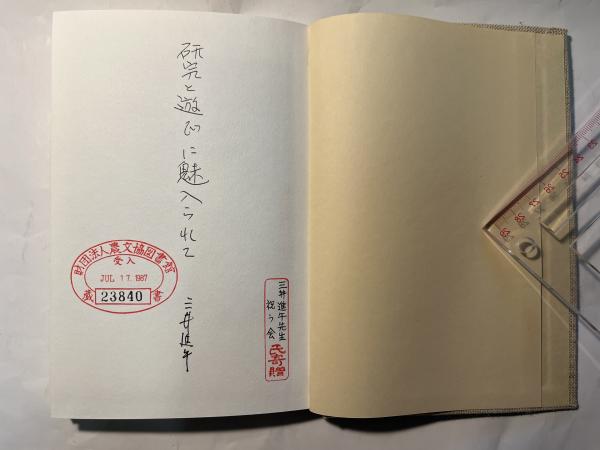 研究と遊びに魅入られて
三井進午
財団法人農文協図書館
受入
JUL 17. 1987
蔵 23840 書
三井進午先生
祝う会
氏寄贈